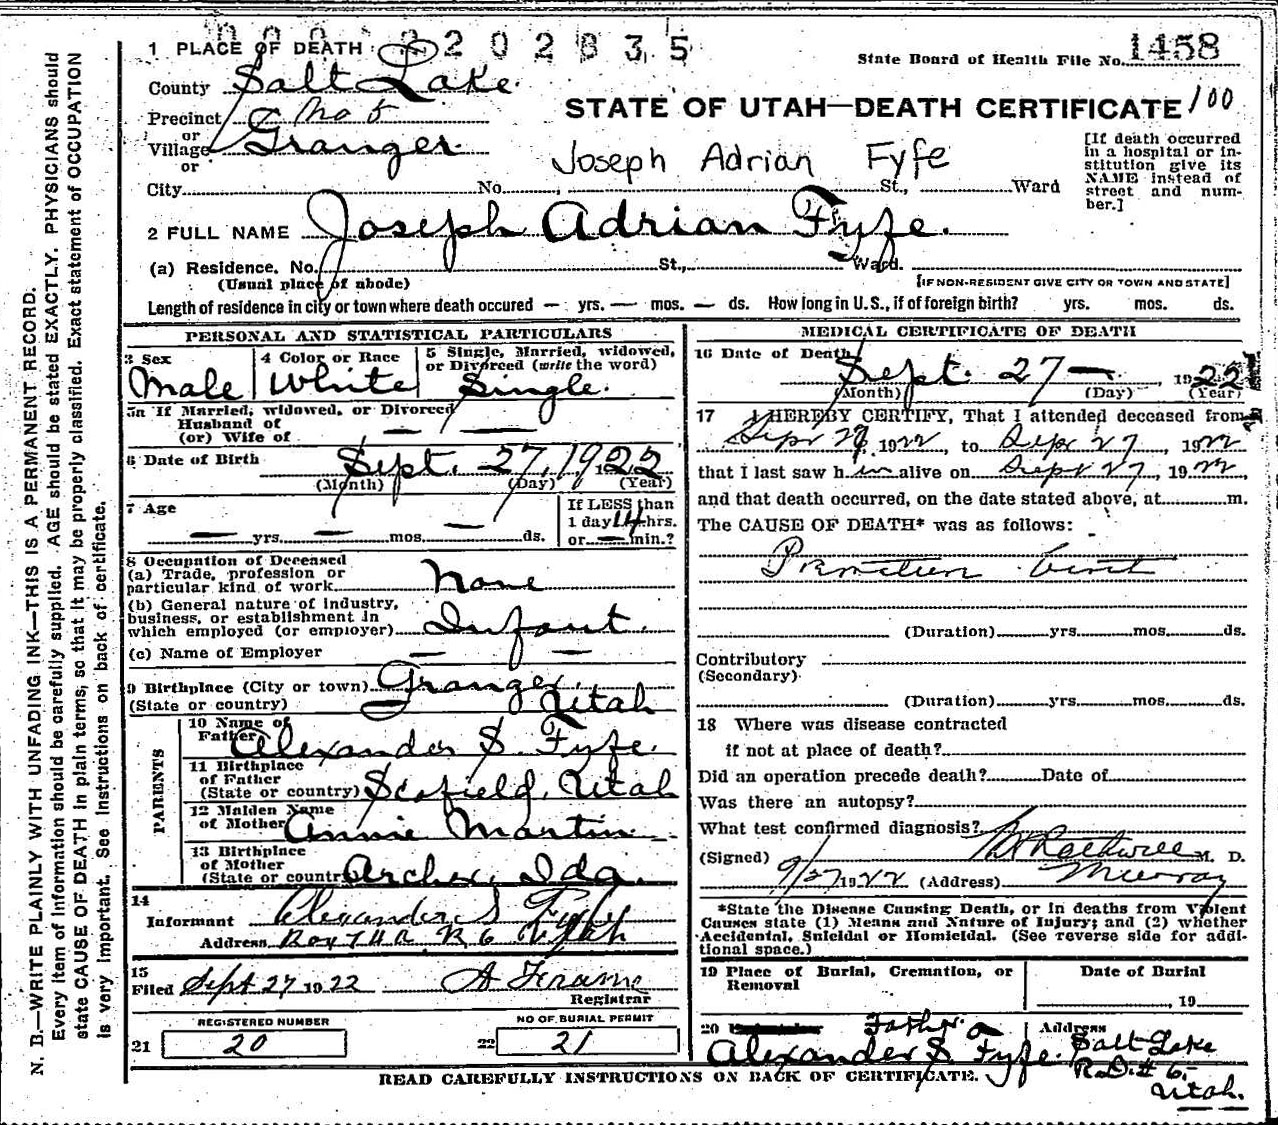 N. B.—WRITE PLAINLY WITH UNFADING INK—THIS IS A PERMANENT RECORD.
Every item of information should be carefully supplied. AGE should be stated EXACTLY. PHYSICIANS should
state CAUSE OF DEATH in plain terms, so that it may be properly classified. Exact statement of OCCUPATION
is very important. See instructions on back of certificate.
2202835
1 PLACE OF DEATH
State Board of Health File No. 1458
County Salt Lake.
STATE OF UTAH—DEATH CERTIFICATE 100
Precinct No 5
or
Village Granger.
or
Joseph Adrian Fyfe
[If death occurred
in a hospital or in-
stitution give its
NAME instead of
street and num-
ber.]
City No. St., Ward
2 FULL NAME Joseph Adrian Fyfe.
(a) Residence. No. St., Ward.
(Usual place of abode) [IF NON-RESIDENT GIVE CITY OR TOWN AND STATE]
Length of residence in city or town where death occured — yrs. — mos. — ds. How long in U.S., if of foreign birth? yrs. mos. ds.
PERSONAL AND STATISTICAL PARTICULARS
3 Sex 4 Color or Race 5 Single, Married, widowed,
or Divorced (write the word)
Male White Single.
5a If Married, widowed, or Divorced
Husband of
(or) Wife of — —
6 Date of Birth Sept. 27, 1922
(Month) (Day) (Year)
7 Age If LESS than
1 day 14 hrs.
— yrs. — mos. — ds. or — min.?
8 Occupation of Deceased
(a) Trade, profession or
particular kind of work None
(b) General nature of industry,
business, or establishment in
which employed (or employer) Infant.
(c) Name of Employer — —
9 Birthplace (City or town) Granger,
(State or country) Utah
PARENTS
10 Name of
Father Alexander S. Fyfe.
11 Birthplace
of Father
(State or country) Scofield, Utah
12 Maiden Name
of Mother Annie Martin
13 Birthplace
of Mother
(State or country) Archer, Ida.
14
Informant Alexander S Fyfe
Address Box 7 R 6 Utah
15
Filed Sept 27 1922
Registrar
REGISTERED NUMBER NO OF BURIAL PERMIT
21 20 22 21
MEDICAL CERTIFICATE OF DEATH
16 Date of Death
Sept. 27— 1922
(Month) (Day) (Year)
17 I HEREBY CERTIFY, That I attended deceased from
Sept 27, 1922 to Sept 27, 1922
that I last saw him alive on Sept 27, 1922,
and that death occurred, on the date stated above, at m.
The CAUSE OF DEATH* was as follows:
(Duration) yrs. mos. ds.
Contributory
(Secondary)
(Duration) yrs. mos. ds.
18 Where was disease contracted
if not at place of death?
Did an operation precede death? Date of
Was there an autopsy?
What test confirmed diagnosis?
(Signed) M. D.
9/27 1922 (Address) Murray
*State the Disease Causing Death, or in deaths from Violent
Causes state (1) Means and Nature of Injury; and (2) whether
Accidental, Suicidal or Homicidal. (See reverse side for addi-
tional space.)
19 Place of Burial, Cremation, or
Removal
Date of Burial
, 19
20 Father
Alexander S. Fyfe.
Address
Salt Lake
R.D.# 6.
Utah.
READ CAREFULLY INSTRUCTIONS ON BACK OF CERTIFICATE.